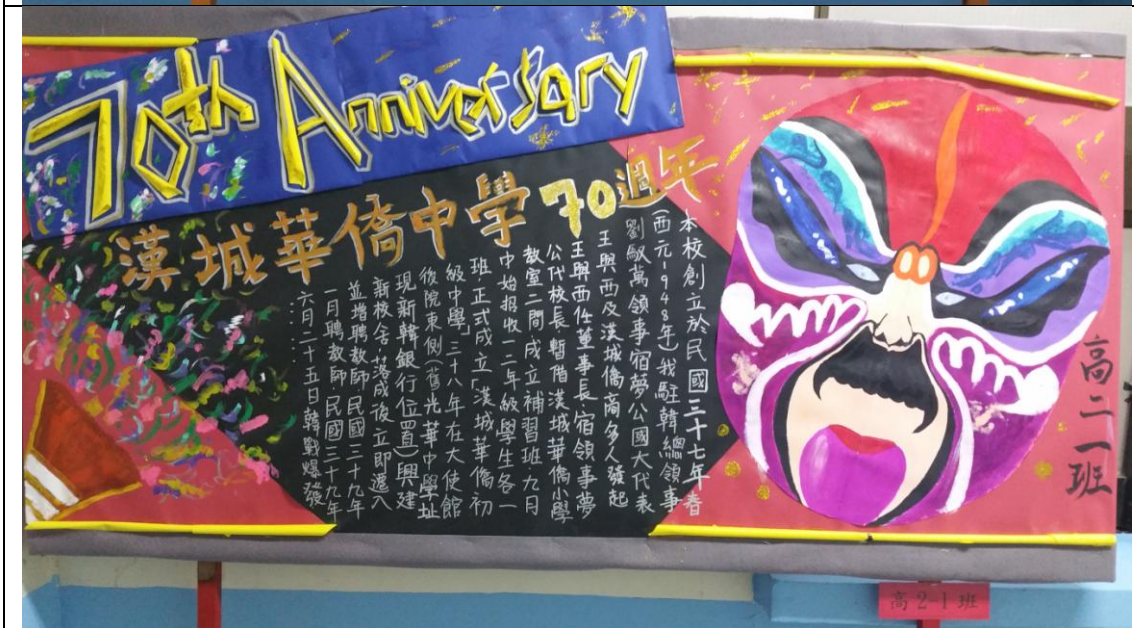 70th Anniversary
漢城華僑中學70週年
本校創立於民國三十七年春
(西元1948年)我駐韓總領事
劉馭萬領事宿夢公國大代表
王興西及漢城僑商多人發起
王興西任董事長宿領事夢
公代校長暫借漢城華僑小學
教室二間成立補習班九月
中始招收一二年級學生各一
班正式成立「漢城華僑初
級中學」三十八年在大使館
後院東側(舊光華中學址
現新韓銀行位置)興建
新校舍落成後立即遷入
並增聘教師民國三十九年
一月聘教師民國三十九年
六月二十五日韓戰爆發
⋯⋯
高二一班
高2-1班